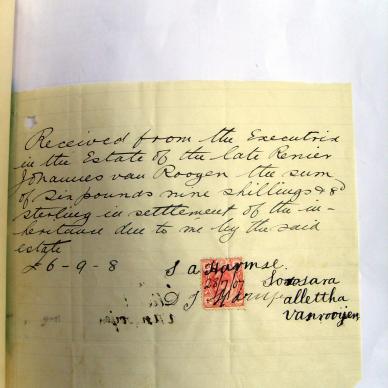 Received from the Executrix
in the Estate of the late Renier
Johannes van Rooyen the sum
of six pounds nine shillings & 8d
sterling in settlement of the in-
heritance due to me by the said
estate
£ 6-9-8 S a Harmse.
28/7/07 sara
allettha
vanrooijen